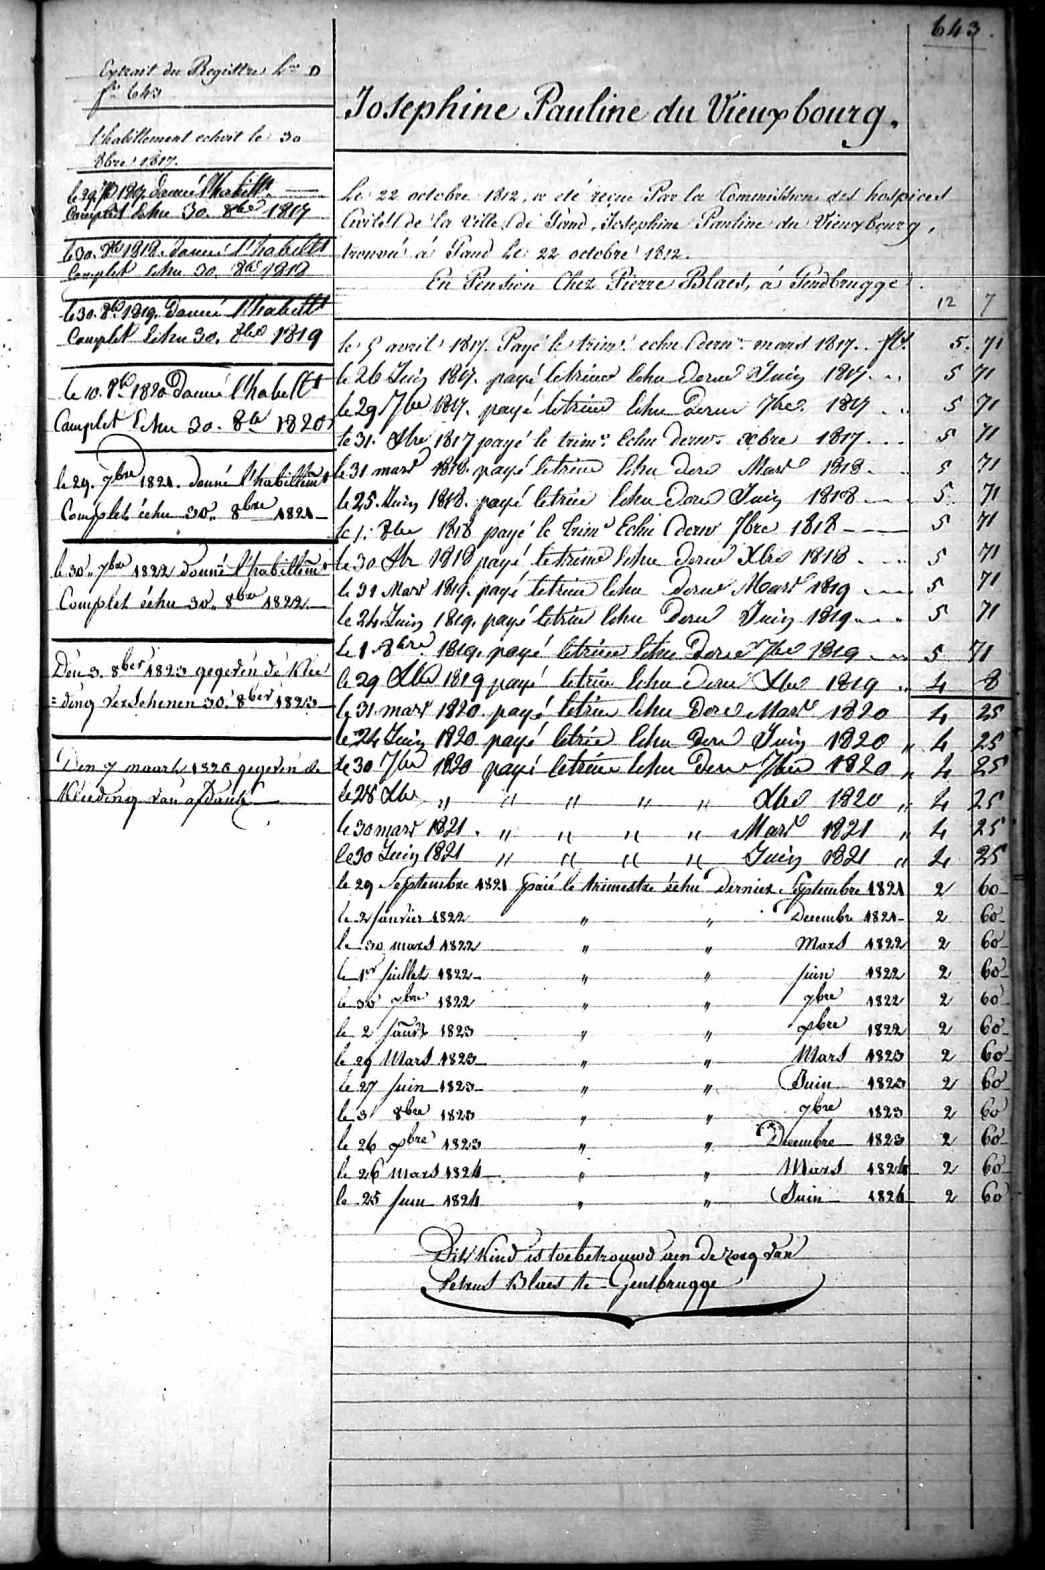 643.
Extrait du Registre Lre D
fo 643
l'habillement echoit le 30
8bre 1817.
le 29 1817 donné l'habillt
Complet Echu 30. 8bre 1817
le 30. 8bre 1818. donné l'habillt
Complet echu 30. 8bre 1818
le 30. 8bre 1819. Donné l'habillt
Complet Echu 30. 8bre 1819
le 10. 8bre 1820 Donné l'habillt
Complet Echu 30. 8bre 1820
le 29. 7bre 1821. donné l'habillemt
Complet échu 30. 8bre 1821
le 30. 7bre 1822 donné l'habillemt
Complet échu 30. 8bre 1822
Den 3. 8ber 1823 gegeven de klee
=ding verschenen 30. 8ber 1823
Den 7 maart 1826 gegeven de
kleeding van
Josephine Pauline du Vieuxbourg.
Le 22 octobre 1812, a eté reçue Par la Commission des hospices
Civils de la Ville de Gand, Josephine Pauline du Vieuxbourg,
trouvée á Gand le 22 octobre 1812.
En Pension Chez Pierre Blaes, á Gendbrugge.
12 7
le 5 avril 1817. Payé le trimr. echu dernr. mars 1817. fls. 5. 71
le 26 Juin 1817. payé le trime Echu dernr Juin 1817. 5 71
le 29 7bre 1817. payé le trime Echu dernr 7bre. 1817 5 71
le 31. Xbre 1817 payé le trimre Echu dernr. xbre 1817. 5 71
le 31 mars 1818. payé le trime Echu dernr Mars 1818. 5 71
le 25. Juin 1818. payé le trime Echu dernr Juin 1818 5. 71
le 1. 8bre 1818 payé le trime Echu dernr 7bre 1818 5 71
le 30 Xbre 1818 payé le trime Echu dernr Xbre 1818 5 71
le 31 Mars 1819. payé le trime Echu dernr Mars 1819 5 71
le 24 Juin 1819. payé le trime Echu Dernr Juin 1819 5 71
le 1 8bre. 1819. payé le trime Echu Dernr 7bre 1819 5 71
le 29 Xbre 1819 payé le trime Echu dernr Xbre 1819 4 8
le 31 mars 1820. payé le trime Echu Dernr Mars 1820 4 25
le 24 Juin 1820. payé le trime Echu Dernr Juin 1820 " 4 25
le 30 7bre 1820 payé le trime Echu Dernr 7bre 1820 " 4 25
le 28 Xbre " " " " " Xbre 1820 " 4 25
le 30 mars 1821. " " " " Mars 1821 " 4 25
le 30 Juin 1821 " " " " Juin 1821 " 4 25
le 29 Septembre 1821 paié le trimestre échu dernier Septembre 1821 2 60
le 2 janvier 1822 " " Decembre 1821 2 60
le 30 mars 1822 " " Mars 1822 2 60
le 1er juillet 1822 " " juin 1822 2 60
le 30 7bre 1822 " " 7bre 1822 2 60
le 2 janvr 1823 " " xbre 1822 2 60
le 29 Mars 1823 " " Mars 1823 2 60
le 27 juin 1823 " " Juin 1823 2 60
le 3 8bre 1823 " " 7bre 1823 2 60
le 26 xbre 1823 " " Decembre 1823 2 60
le 26 mars 1824 " " Mars 1824 2 60
le 25 juin 1824 " " Juin 1824 2 60
Dit kind is toebetrouwd aen de zorg van
Petrus Blaes te Gentbrugge